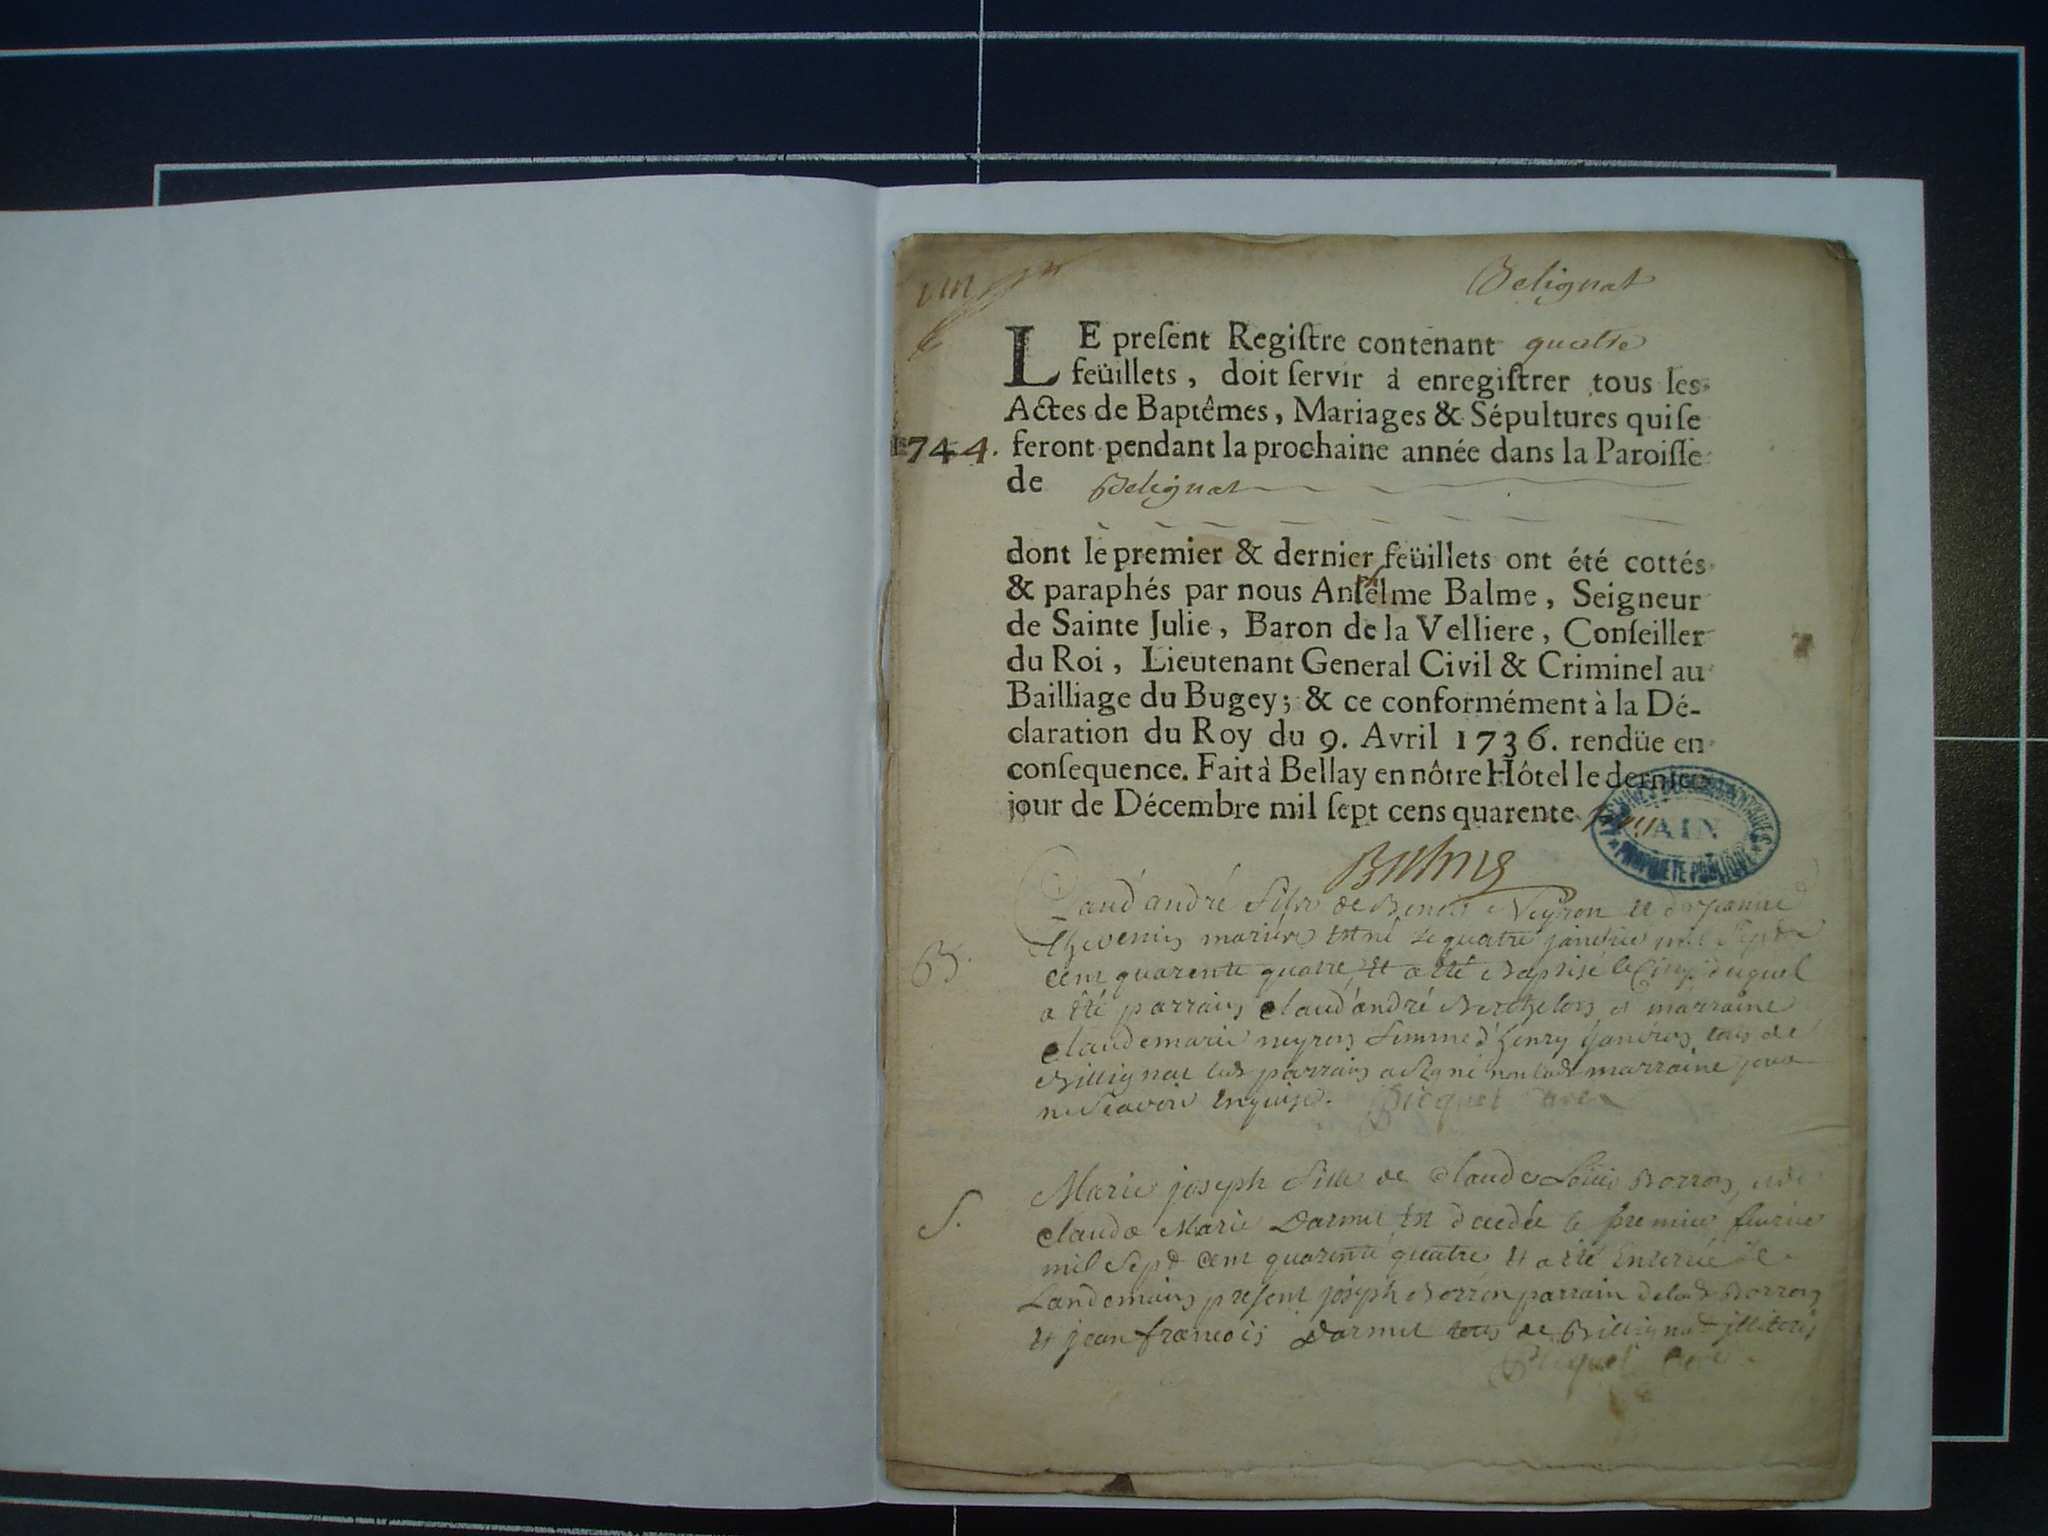 Belignat
LE preſent Regiſtre contenant quatre
feüillets, doit ſervir à enregiſtrer tous les
Actes de Baptêmes, Mariages & Sépultures qui ſe
1744. feront pendant la prochaine année dans la Paroiſſe
de Belignat
dont le premier & dernier feüillets ont été cottés
& paraphés par nous Anſelme Balme, Seigneur
de Sainte Julie, Baron de la Velliere, Conſeiller
du Roi, Lieutenant General Civil & Criminel au
Bailliage du Bugey; & ce conformément à la Dé-
claration du Roy du 9. Avril 1736. rendüe en
conſequence. Fait à Bellay en nôtre Hôtel le dernier
jour de Décembre mil ſept cens quarente
ARCHIVES DEPARTEMENTALES
AIN
PROPRIETE PUBLIQUE
Balme
Claud'andré fils de Benoit Neyron et de Jeanne
Thevenin mariés est né le quatre janvier mil sept
B. cent quarente quatre, et a été Baptisé le cinq duquel
a été parrain claud'andré Berthelon et marraine
claudemarie neyron femme d'henry tous de
Billignat led parrain a signé non lad marraine pour
ne scavoir enquise. Picquet curé
Marie joseph fille de claude Louis Borron, et de
S. claude Marie Darmet est decedée le premier fevrier
mil sept cent quarente quatre et a été enterrée le
Landemain present joseph Borron parrain de lad Borron
et jean francois Darmet tous de Billignat illiterés
Picquet curé